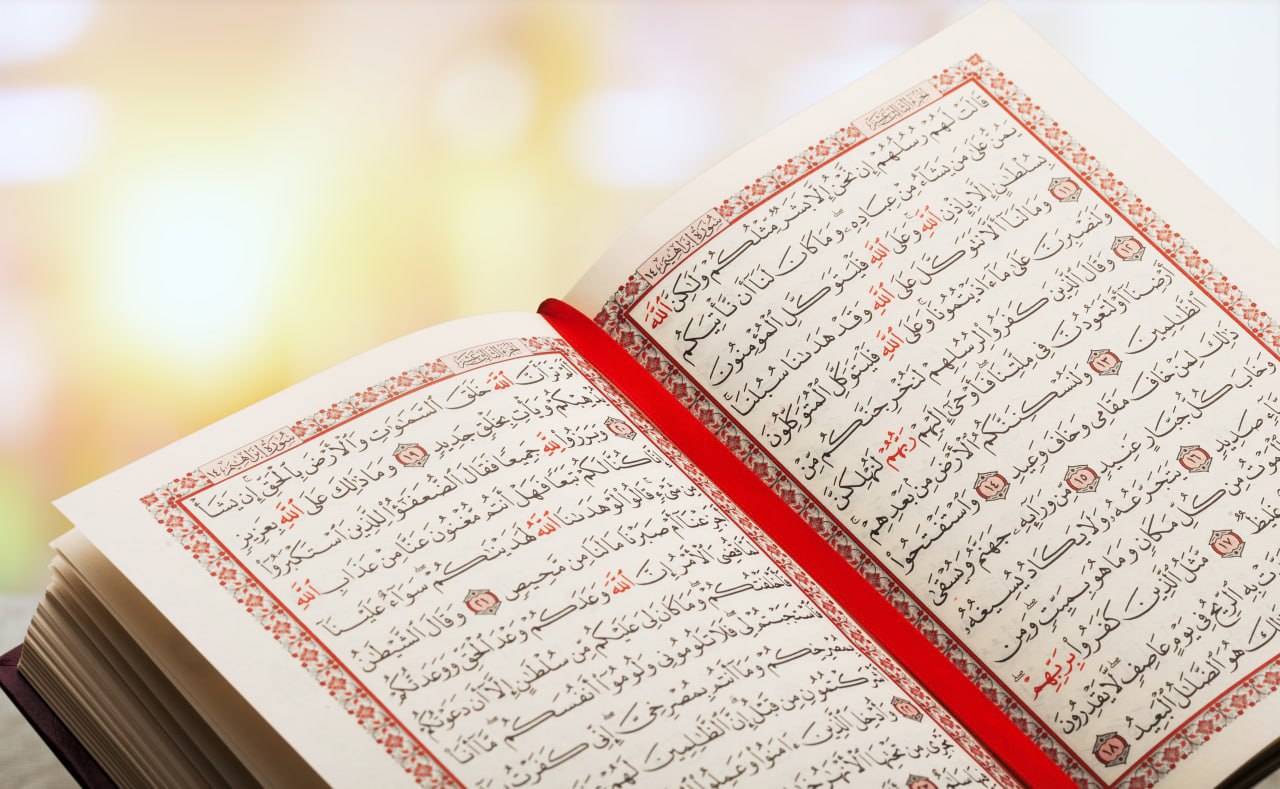 الجزء الثالث عشر
سورة إبراهيم ١٤
قَالَتْ لَهُمْ رُسُلُهُمْ إِن نَّحْنُ إِلَّا بَشَرٌ مِّثْلُكُمْ وَلَٰكِنَّ ٱللَّهَ
يَمُنُّ عَلَىٰ مَن يَشَآءُ مِنْ عِبَادِهِۦ ۖ وَمَا كَانَ لَنَآ أَن نَّأْتِيَكُم
بِسُلْطَٰنٍ إِلَّا بِإِذْنِ ٱللَّهِ ۚ وَعَلَى ٱللَّهِ فَلْيَتَوَكَّلِ ٱلْمُؤْمِنُونَ
١١ وَمَا لَنَآ أَلَّا نَتَوَكَّلَ عَلَى ٱللَّهِ وَقَدْ هَدَىٰنَا سُبُلَنَا
وَلَنَصْبِرَنَّ عَلَىٰ مَآ ءَاذَيْتُمُونَا ۚ وَعَلَى ٱللَّهِ فَلْيَتَوَكَّلِ ٱلْمُتَوَكِّلُونَ
١٢ وَقَالَ ٱلَّذِينَ كَفَرُوا۟ لِرُسُلِهِمْ لَنُخْرِجَنَّكُم مِّنْ
أَرْضِنَآ أَوْ لَتَعُودُنَّ فِى مِلَّتِنَا ۖ فَأَوْحَىٰٓ إِلَيْهِمْ رَبُّهُمْ لَنُهْلِكَنَّ
ٱلظَّٰلِمِينَ ١٣ وَلَنُسْكِنَنَّكُمُ ٱلْأَرْضَ مِنۢ بَعْدِهِمْ
ذَٰلِكَ لِمَنْ خَافَ مَقَامِى وَخَافَ وَعِيدِ ١٤ وَٱسْتَفْتَحُوا۟
وَخَابَ كُلُّ جَبَّارٍ عَنِيدٍ ١٥ مِّن وَرَآئِهِۦ جَهَنَّمُ وَيُسْقَىٰ
صَدِيدٍ ١٦ يَتَجَرَّعُهُۥ وَلَا يَكَادُ يُسِيغُهُۥ
مِن كُلِّ مَكَانٍ وَمَا هُوَ بِمَيِّتٍ ۖ وَمِن
غَلِيظٌ ١٧ مَّثَلُ ٱلَّذِينَ كَفَرُوا۟ بِرَبِّهِمْ ۖ
بِهِ ٱلرِّيحُ فِى يَوْمٍ عَاصِفٍ ۖ لَّا يَقْدِرُونَ
هُوَ ٱلضَّلَٰلُ ٱلْبَعِيدُ ١٨
الجزء الثالث عشر
سورة إبراهيم ١٤
تَرَ أَنَّ ٱللَّهَ خَلَقَ ٱلسَّمَٰوَٰتِ وَٱلْأَرْضَ بِٱلْحَقِّ ۚ إِن يَشَأْ
وَيَأْتِ بِخَلْقٍ جَدِيدٍ ١٩ وَمَا ذَٰلِكَ عَلَى ٱللَّهِ بِعَزِيزٍ
٢٠ وَبَرَزُوا۟ لِلَّهِ جَمِيعًا فَقَالَ ٱلضُّعَفَٰٓؤُا۟ لِلَّذِينَ ٱسْتَكْبَرُوٓا۟
إِنَّا كُنَّا لَكُمْ تَبَعًا فَهَلْ أَنتُم مُّغْنُونَ عَنَّا مِنْ عَذَابِ ٱللَّهِ
مِن شَىْءٍ ۚ قَالُوا۟ لَوْ هَدَىٰنَا ٱللَّهُ لَهَدَيْنَٰكُمْ ۖ سَوَآءٌ عَلَيْنَآ
أَجَزِعْنَآ أَمْ صَبَرْنَا مَا لَنَا مِن مَّحِيصٍ ٢١ وَقَالَ ٱلشَّيْطَٰنُ
قُضِىَ ٱلْأَمْرُ إِنَّ ٱللَّهَ وَعَدَكُمْ وَعْدَ ٱلْحَقِّ وَوَعَدتُّكُمْ
فَأَخْلَفْتُكُمْ ۖ وَمَا كَانَ لِىَ عَلَيْكُم مِّن سُلْطَٰنٍ إِلَّآ أَن دَعَوْتُكُمْ
فَٱسْتَجَبْتُمْ لِى ۖ فَلَا تَلُومُونِى وَلُومُوٓا۟ أَنفُسَكُم ۖ مَّآ أَنَا۠
بِمُصْرِخِكُمْ وَمَآ أَنتُم بِمُصْرِخِىَّ ۖ إِنِّى كَفَرْتُ
أَشْرَكْتُمُونِ مِن قَبْلُ ۗ إِنَّ ٱلظَّٰلِمِينَ لَهُمْ
وَأُدْخِلَ ٱلَّذِينَ ءَامَنُوا۟ وَعَمِلُوا۟
تَجْرِى مِن تَحْتِهَا ٱلْأَنْهَٰرُ